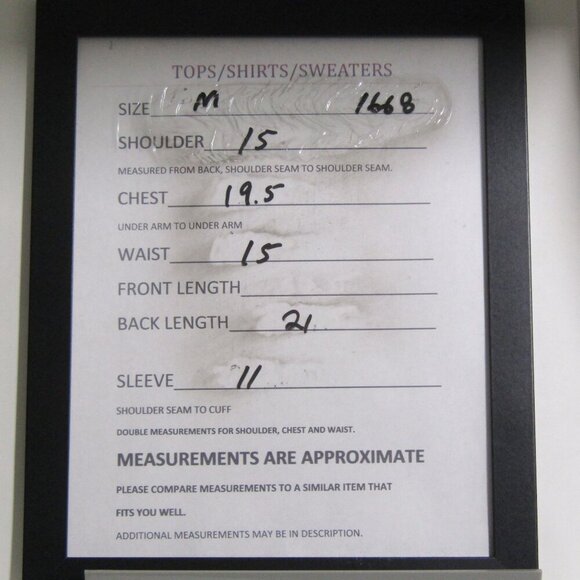 TOPS/SHIRTS/SWEATERS
SIZE M 1668
SHOULDER 15
MEASURED FROM BACK, SHOULDER SEAM TO SHOULDER SEAM.
CHEST 19.5
UNDER ARM TO UNDER ARM
WAIST 15
FRONT LENGTH
BACK LENGTH 21
SLEEVE 11
SHOULDER SEAM TO CUFF
DOUBLE MEASUREMENTS FOR SHOULDER, CHEST AND WAIST.
MEASUREMENTS ARE APPROXIMATE
PLEASE COMPARE MEASUREMENTS TO A SIMILAR ITEM THAT
FITS YOU WELL.
ADDITIONAL MEASUREMENTS MAY BE IN DESCRIPTION.